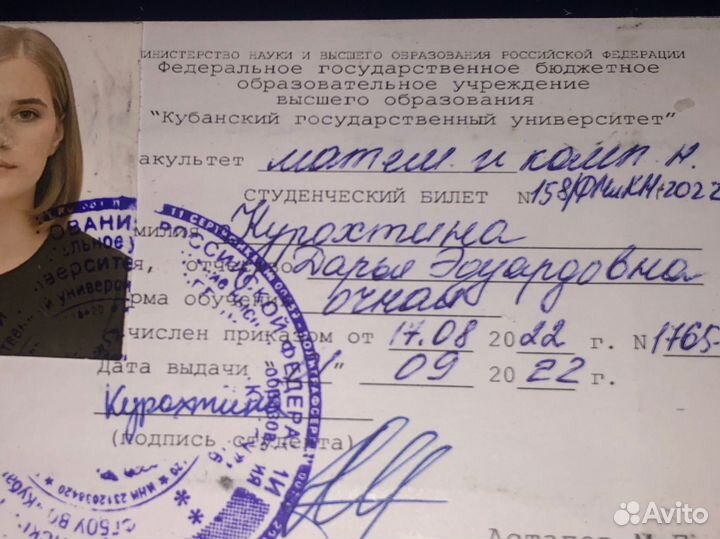 МИНИСТЕРСТВО НАУКИ И ВЫСШЕГО ОБРАЗОВАНИЯ РОССИЙСКОЙ ФЕДЕРАЦИИ
Федеральное государственное бюджетное
образовательное учреждение
высшего образования
"Кубанский государственный университет"
акультет матем. и комп. н.
СТУДЕНЧЕСКИЙ БИЛЕТ N 158/ФМиКН-2022
милия Курохтина
я, отчество Дарья Эдуардовна
рма обучения очная
ачислен приказом от 17.08 2022 г. N 1765-
Дата выдачи "1" 09 2022 г.
Курохтина
(подпись студента)
РОССИЙСКОЙ ФЕДЕРАЦИИ
ИНН 2312038420
Avito